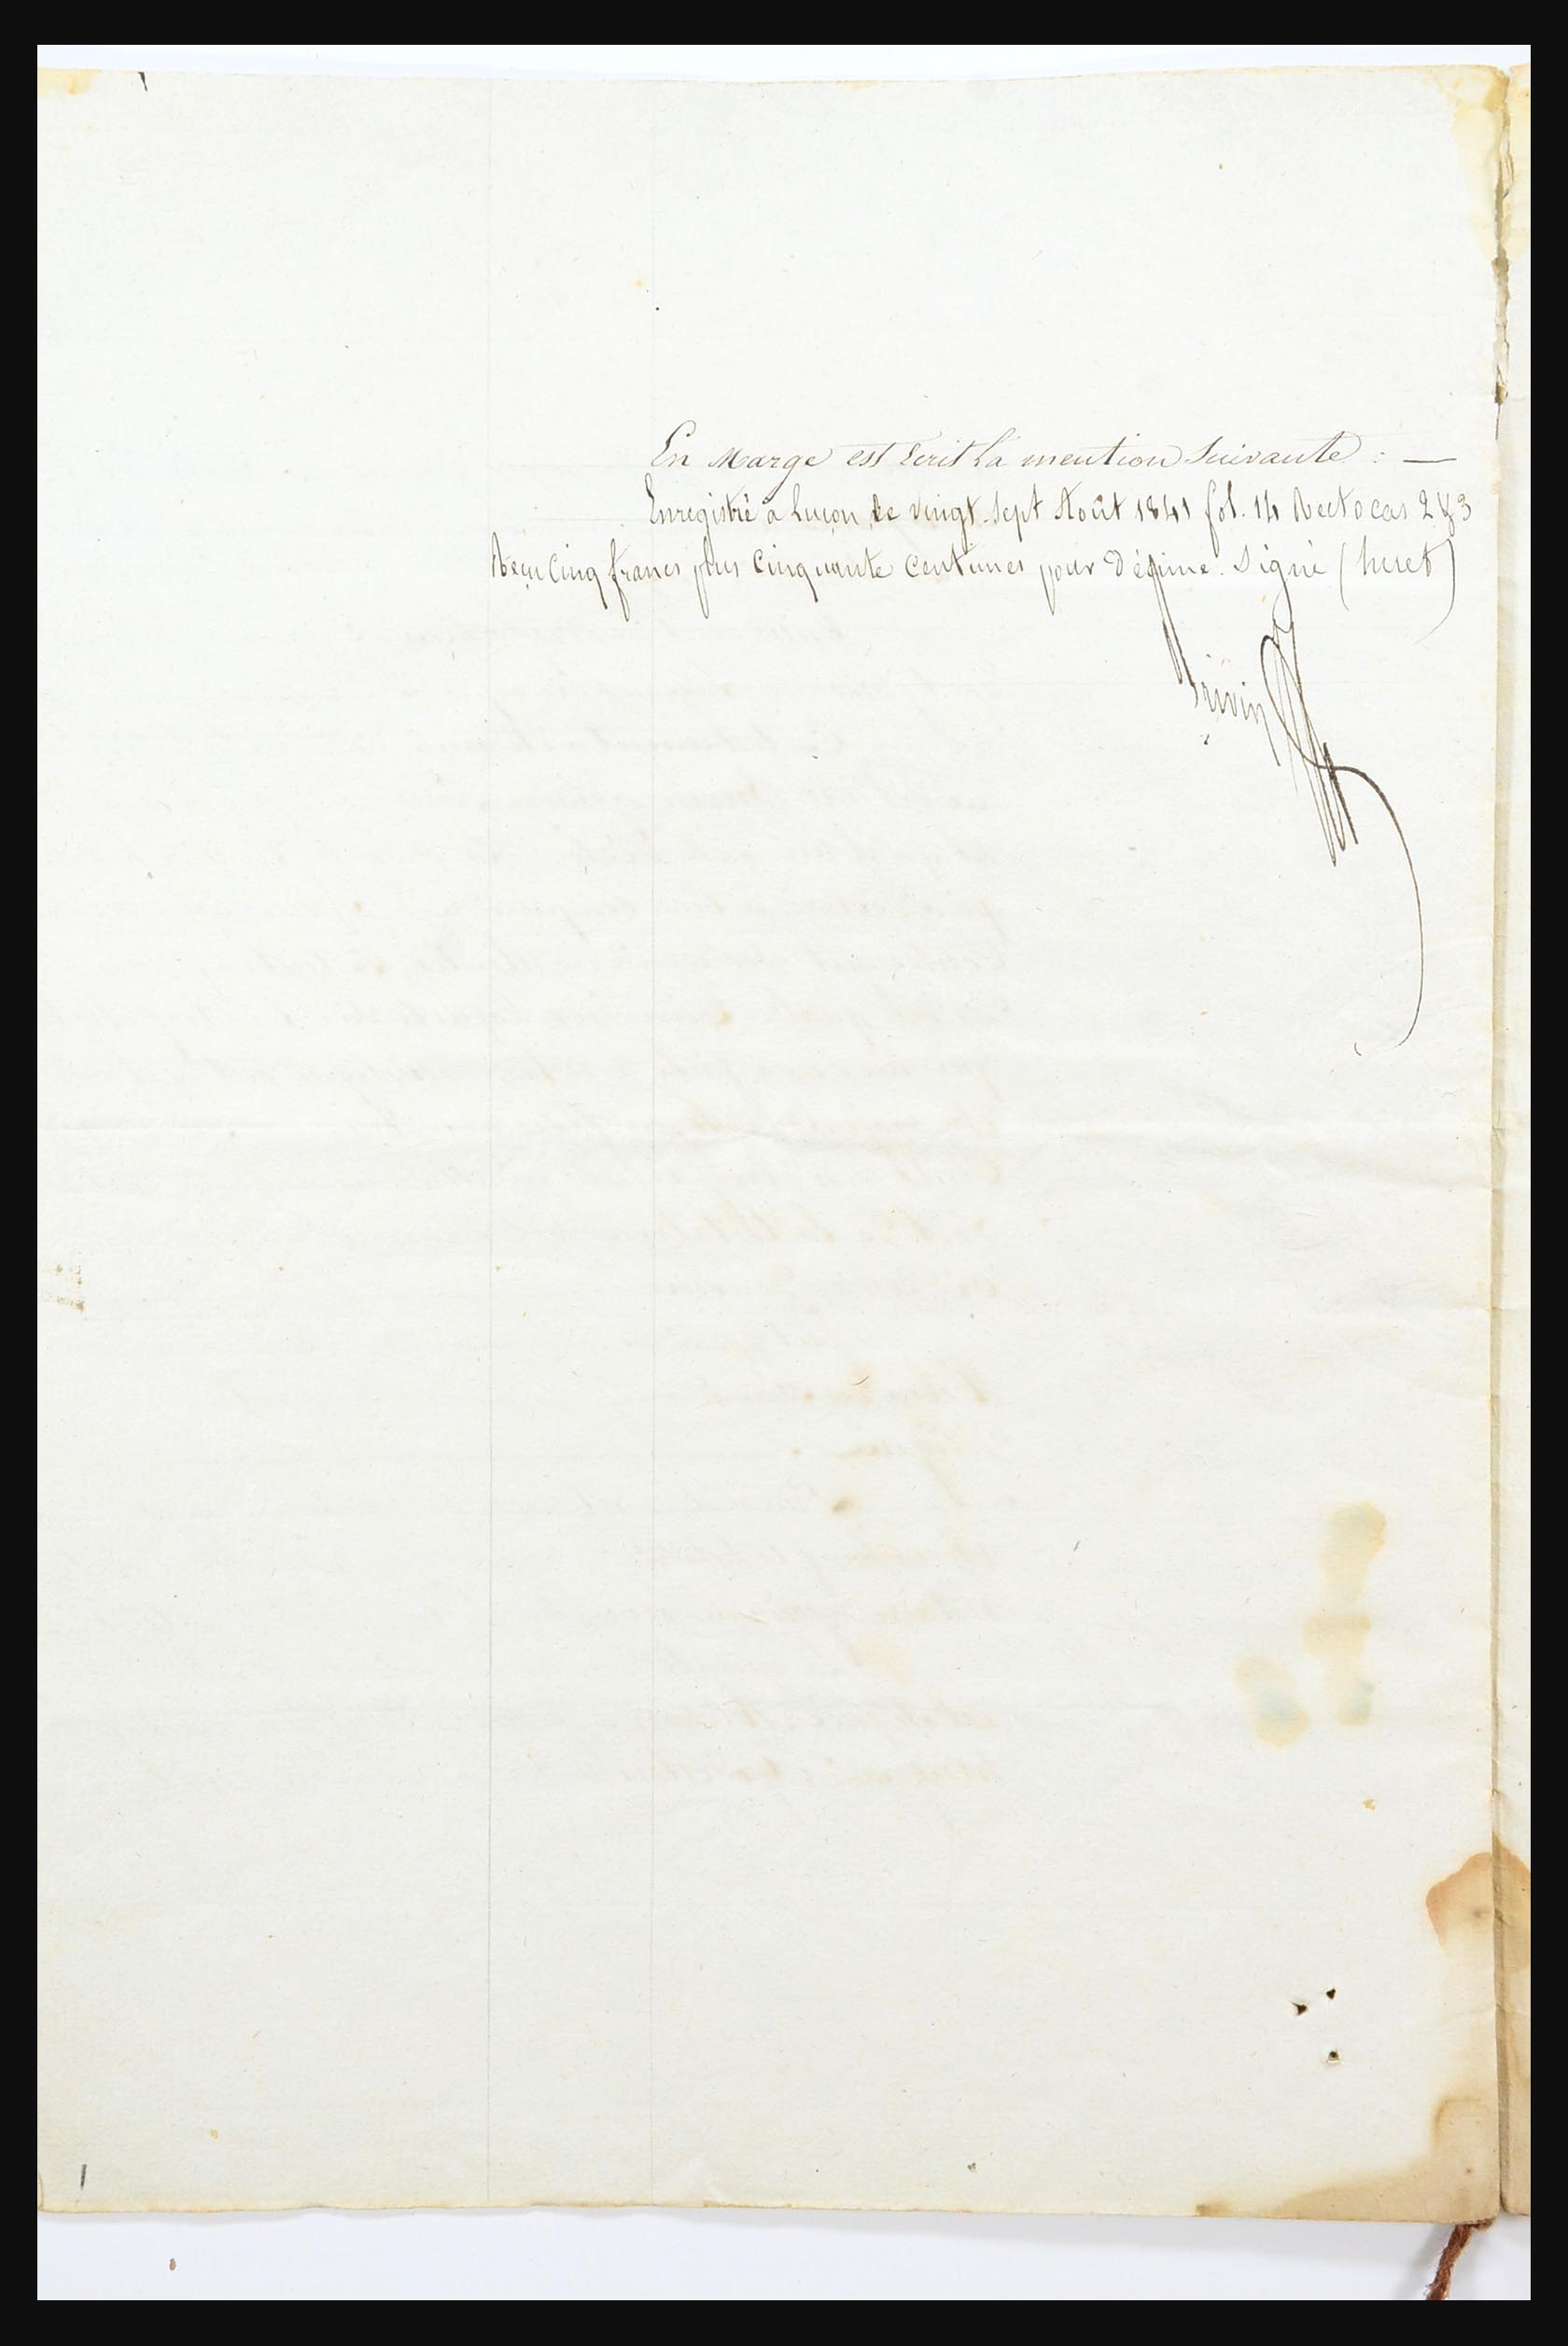 En Marge est Ecrit la mention Suivante : —
Enregistré a Luçon le vingt-Sept Août 1841 fol. 14 Recto cas 2 & 3
Reçu Cinq francs plus Cinquante Centimes pour Décime. Signé (huet)